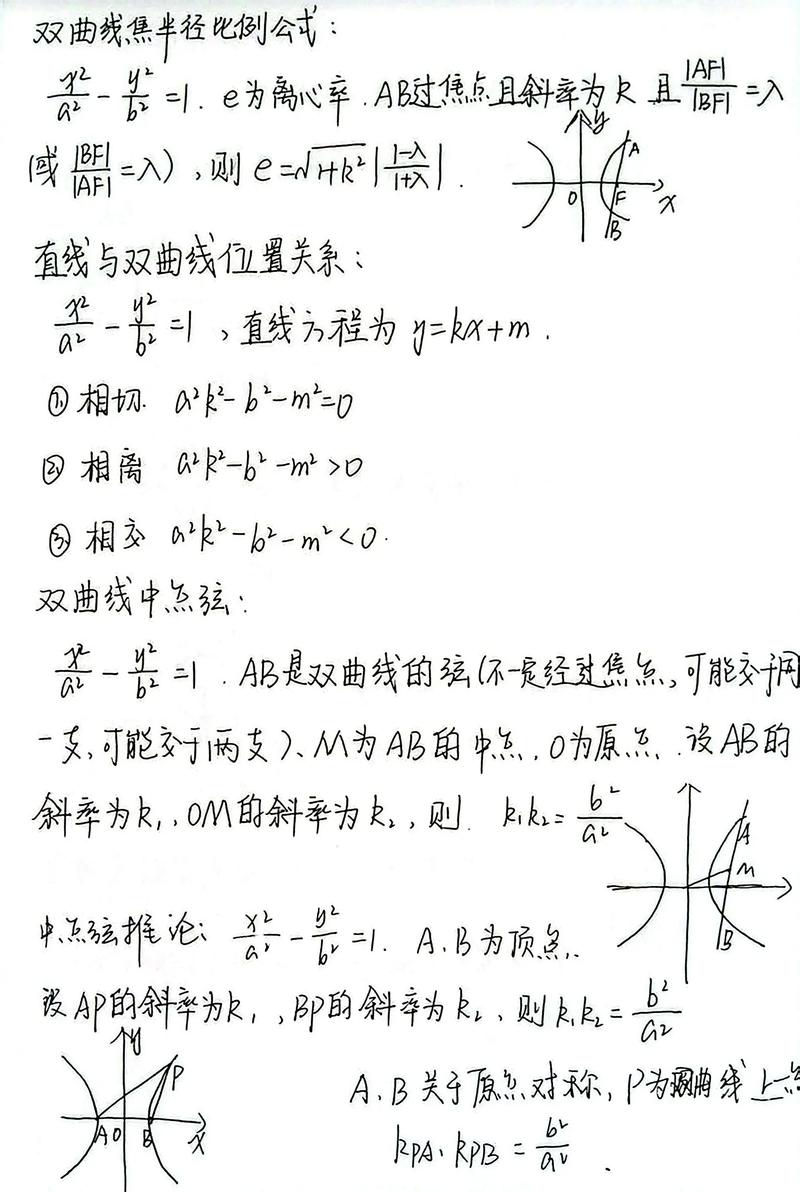 双曲线焦半径比例公式：
x²/a² - y²/b² =1. e为离心率.AB过焦点且斜率为k 且|AF|/|BF|=λ
(或 |BF|/|AF|=λ),则 e=√1+k² |1-λ/1+λ|.
y A O F x B
直线与双曲线位置关系：
x²/a² - y²/b² =1 ,直线方程为 y=kx+m.
① 相切. a²k²-b²-m²=0
② 相离 a²k²-b²-m²>0
③ 相交 a²k²-b²-m²<0.
双曲线中点弦：
x²/a² - y²/b² =1 .AB是双曲线的弦(不一定经过焦点,可能交于同
一支,可能交于两支)、M为AB的中点,O为原点.设AB的
斜率为k₁,OM的斜率为k₂,则 k₁k₂= b²/a²
A M B
中点弦推论: x²/a² - y²/b² =1. A.B为顶点,.
设AP的斜率为k₁,BP的斜率为k₂,则k₁k₂= b²/a²
y P A O B x
A.B关于原点对称,P为曲线上一点
kPA·kPB = b²/a² .